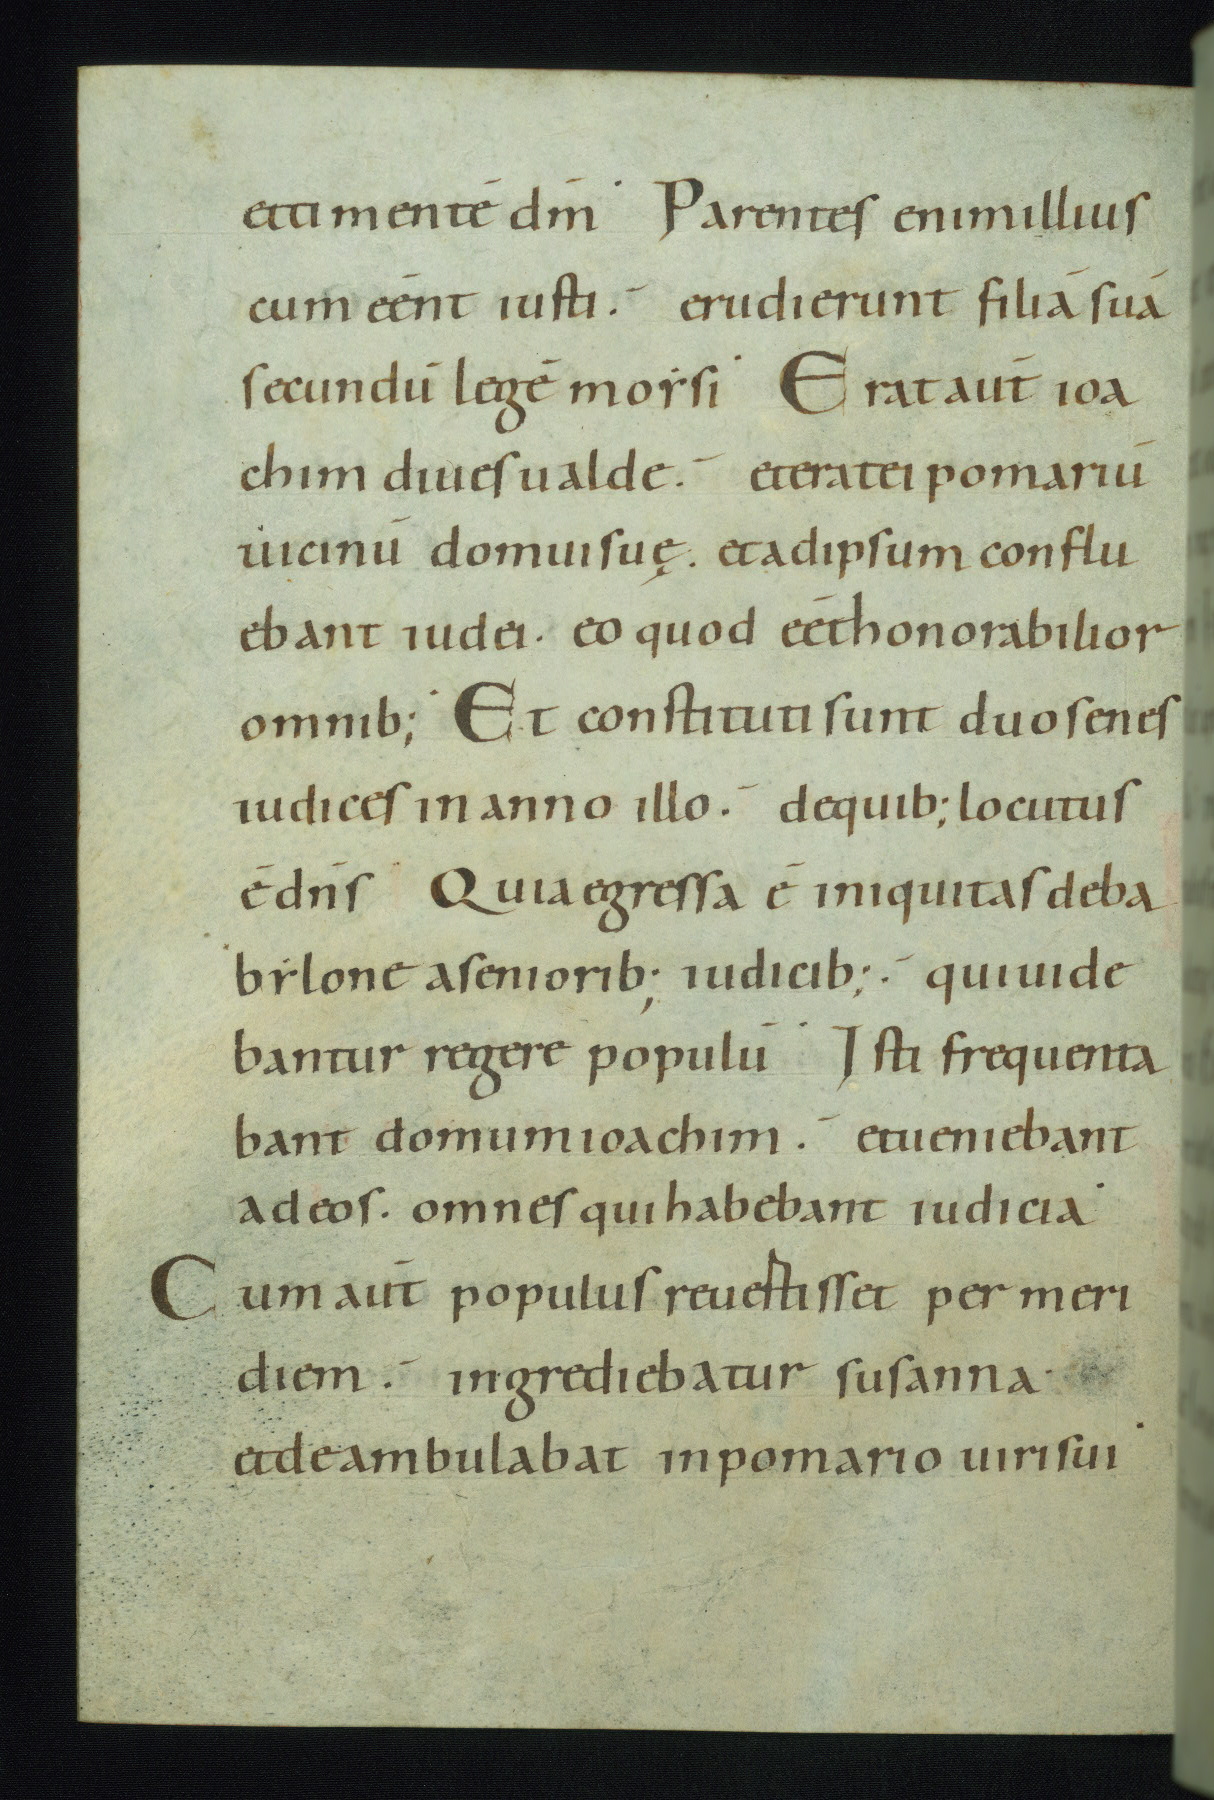 et timentē dm̄· Parentes enim illius
cum eēnt iusti.– erudierunt filiā suā
secundū legē moẏsi· Erat aut̄ ioa
chim diues ualde.– et erat ei pomariū
uicinū domui suę. et ad ipsum conflu
ebant iudei. eo quod eēt honorabilior
omnib;· Et constituti sunt duo senes
iudices in anno illo.– de quib; locutus
ē dn̄s· Quia egressa ē iniquitas de ba
bẏlone a seniorib; iudicib;.– qui uide
bantur regere populū· Isti frequenta
bant domum ioachim.– et ueniebant
ad eos. omnes qui habebant iudicia·
Cum aut̄ populus reuestisset per meri
diem.– ingrediebatur susanna·
et deambulabat in pomario uiri sui·